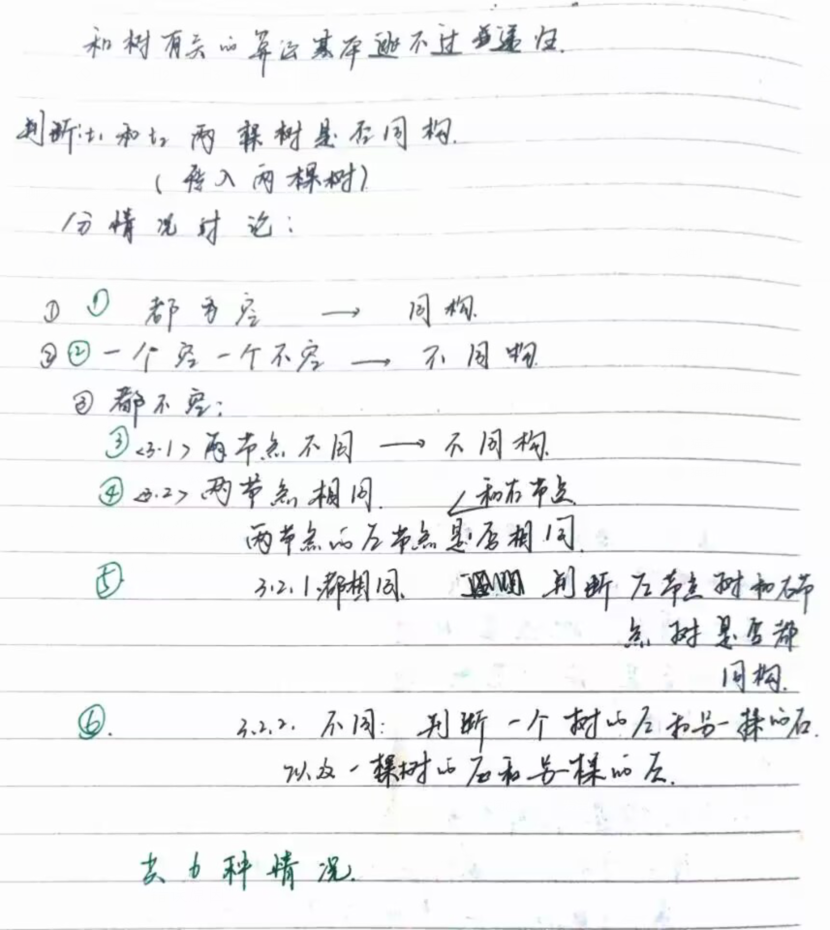 和树有关的算法基本逃不过递归.
判断t1和t2两棵树是否同构.
(传入两棵树)
分情况讨论:
① ① 都为空 → 同构.
② ② 一个空一个不空 → 不同构
③ 都不空:
③ <3.1> 两节点不同 → 不同构.
④ <3.2> 两节点相同. 和右节点
两节点的左节点是否相同.
⑤ 3.2.1 都相同. 判断左节点树和右节
点树是否都
同构.
⑥. 3.2.2. 不同: 判断一个树的左和另一棵的右.
以及一棵树的右和另一棵的左.
共6种情况.